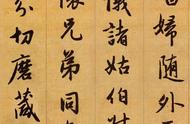 婦隨外
儀諸姑伯
懷兄弟同
分切磨箴